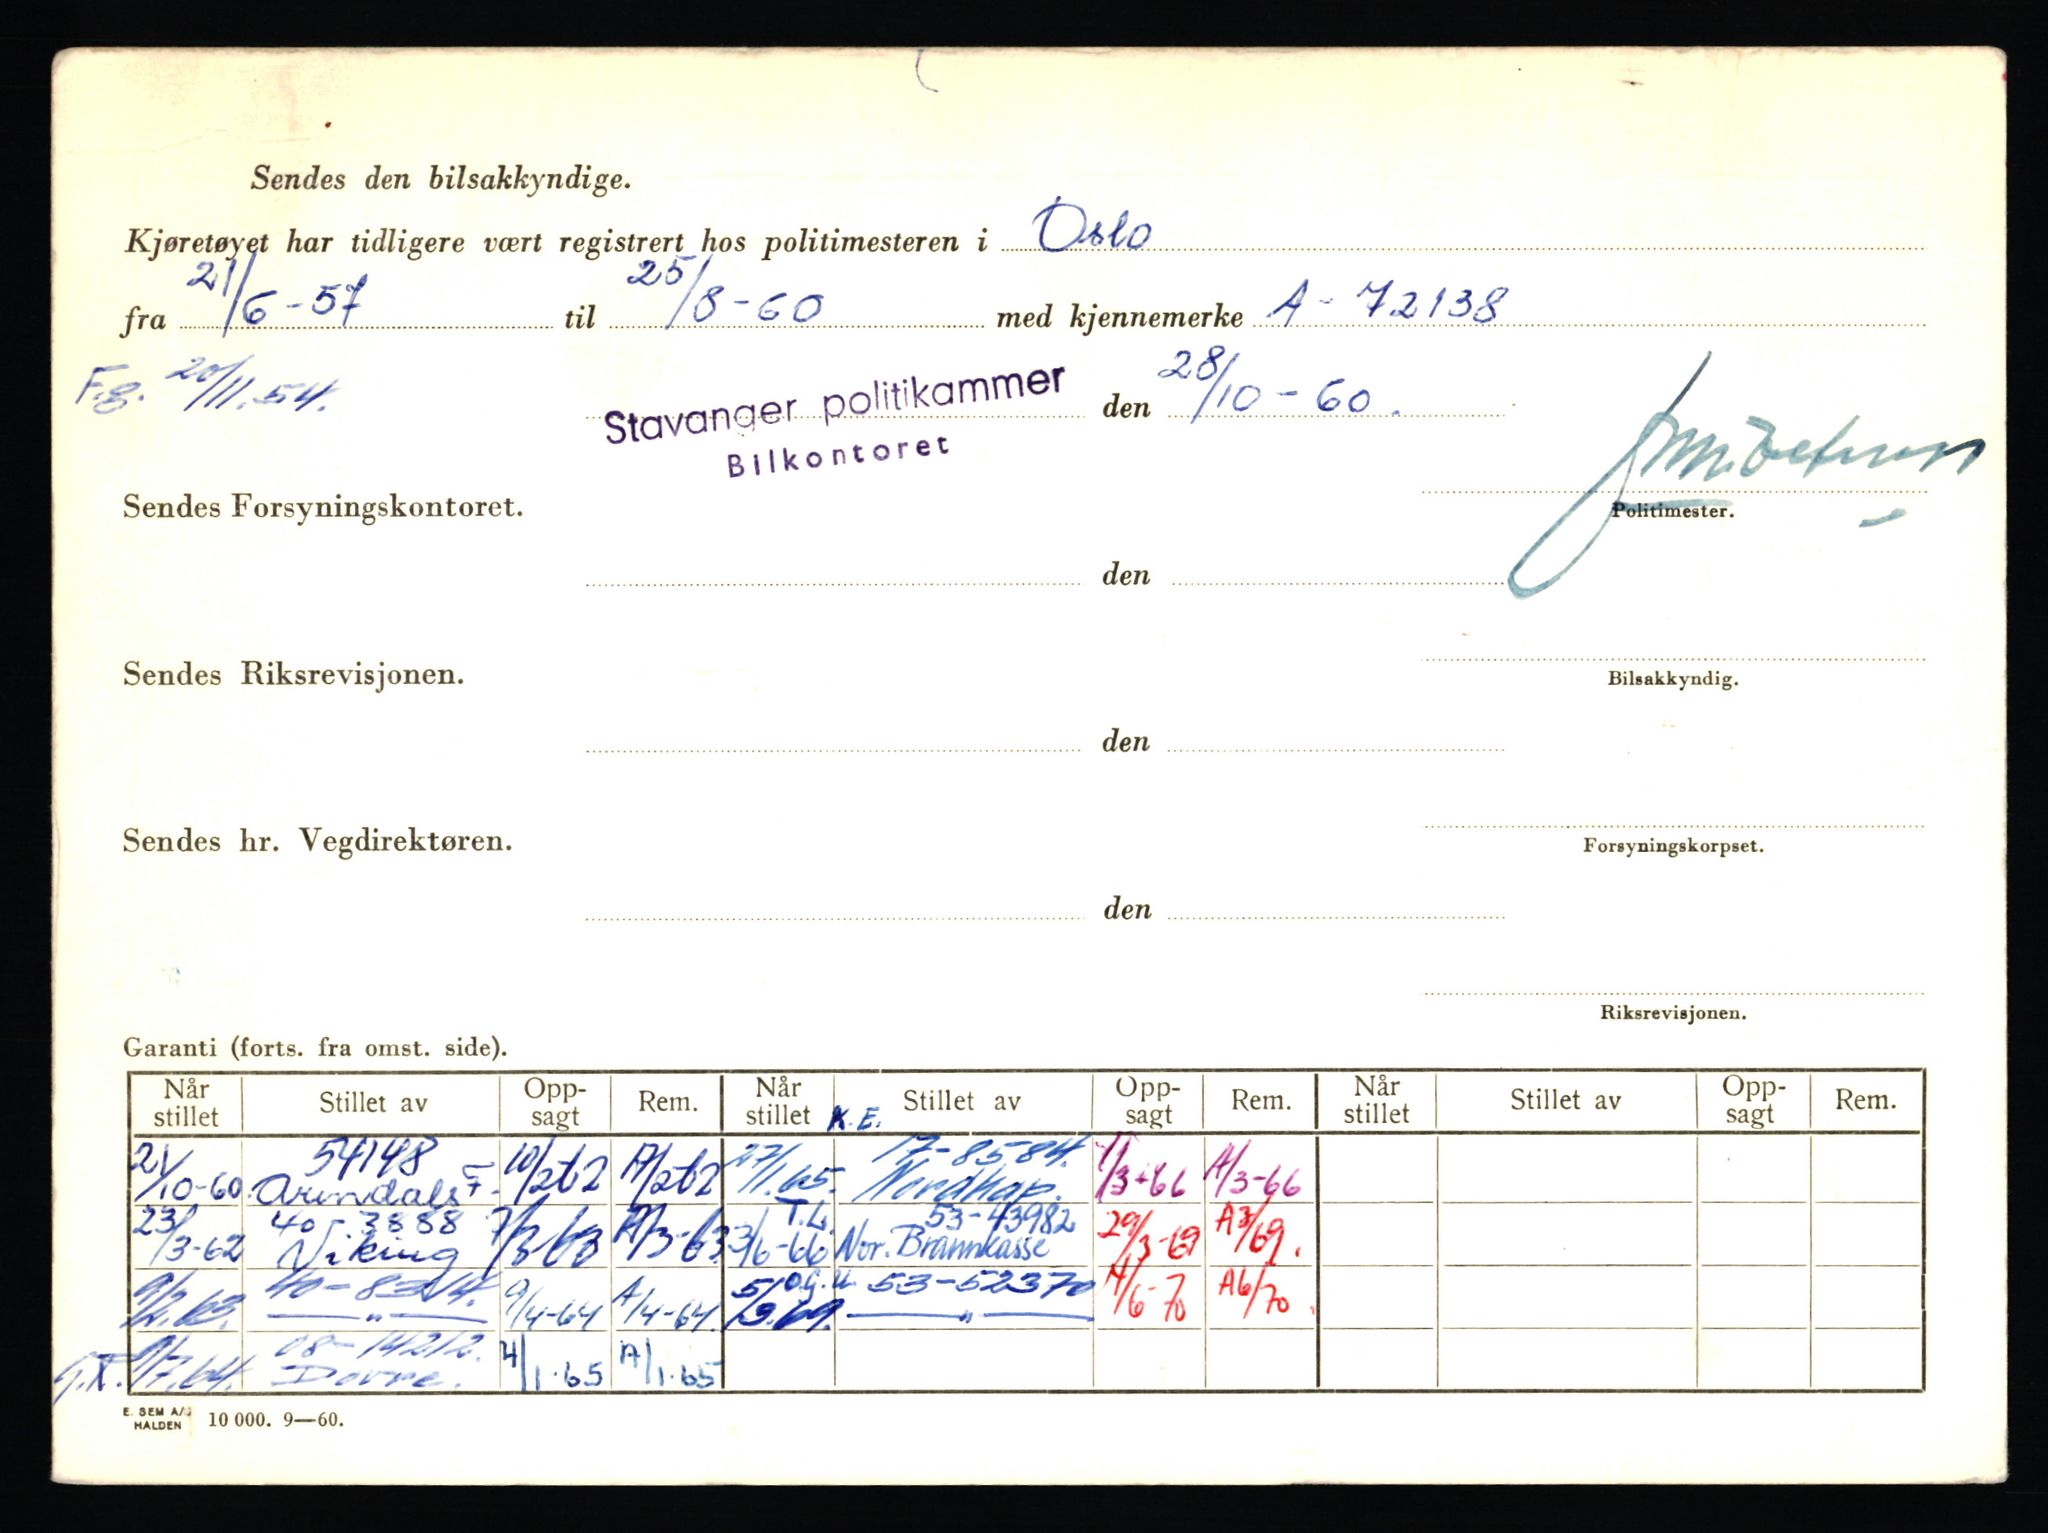 Sendes den bilsakkyndige.
Kjøretøyet har tidligere vært registrert hos politimesteren i Oslo
fra 21/6-57 til 25/8-60 med kjennemerke A-72138
F.g. 20/11.54.
Stavanger politikammer den 28/10-60.
Bilkontoret
Sendes Forsyningskontoret.
Politimester.
den
Sendes Riksrevisjonen.
Bilsakkyndig.
den
Sendes hr. Vegdirektøren.
Forsyningskorpset.
den
Riksrevisjonen.
Garanti (forts. fra omst. side).
Når stillet Stillet av Opp-sagt Rem. Når stillet Stillet av Opp-sagt Rem. Når stillet Stillet av Opp-sagt Rem.
K.E.
21/10-60 54148 Arendals F. 10/262 A/262 27/1.65. 17-8584. Nordkap. 1/3-66 A/3-66
23/3-62 40-3888 Viking 7/3-63 A/3-63 3/6-66 T.L. 53-43982 Nor. Brannkasse 29/3-69 A3/69.
40-8314. — " — 9/4-64 A/4-64. 5/9.69. O.G.U. 53-52370 — " — 4/6-70 A6/70.
9/7.64. 08-14212. Dovre. 4/1.65 A/1.65
E. SEM A/S
HALDEN 10 000. 9—60.